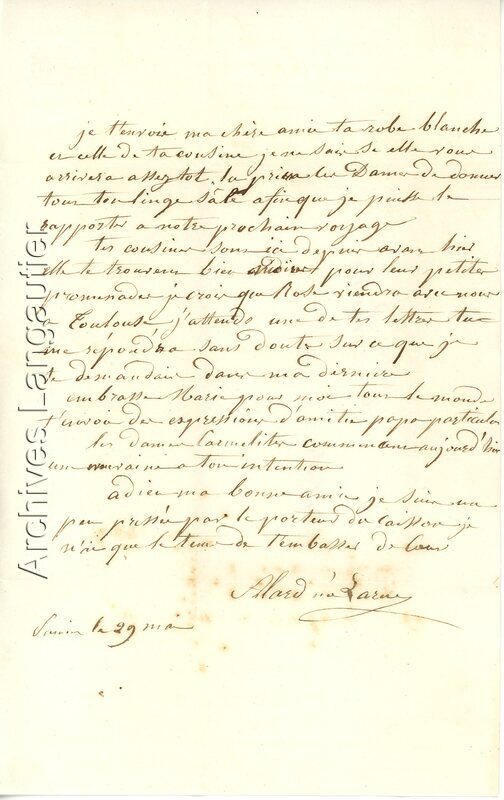 je t'envoie ma chère amie ta robe blanche
et celle de ta cousine je ne sais se elle vous
arrivera assez tot. tu priera les Dames de donner
tous ton linge sâle afin que je puisse le
rapporter a notre prochain voyage
tes cousines sont ici depuis avant hier
elle te trouvens bien pour leur petites
promenades je crois que Rose viendra avec nous
a Toulouse j'attends une de tes lettres tu
me répondra sans doute sur ce que je
te demandais dans ma derniere
embrasse Marie pour moi tous le monde
t'envoi des expressions d'amitie papa particulier
les dames carmelites commencent aujourd'hui
une neuvaine a ton intention
adieu ma bonne amie je suis un
peu pressée par le porteur du caisson je
n'ai que le tems de t'embasser de Cœur
Allard née
le 29 mai
Archives Langautier